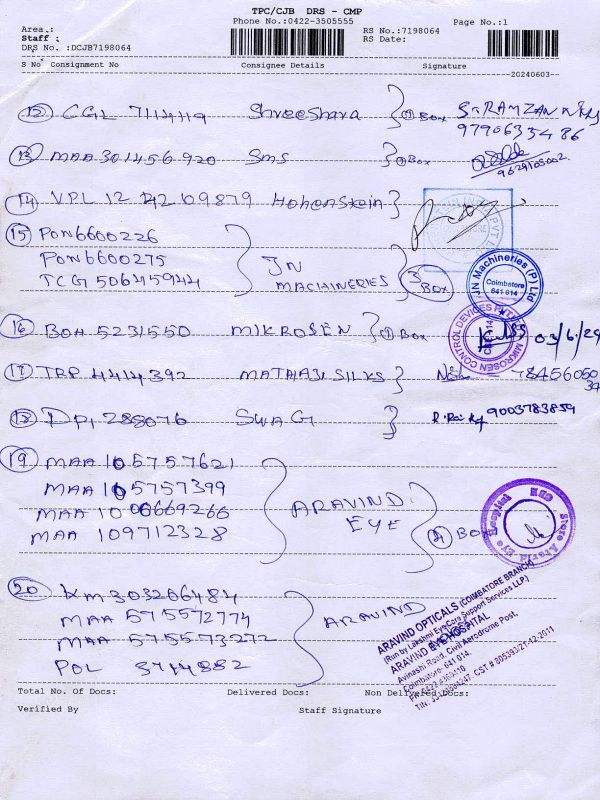 TPC/CJB DRS - CMP
Area.:
Phone No.:0422-3505555
Page No.:1
Staff :
RS No.:7198064
DRS No. :DCJB7198064
RS Date:
S No Consignment No Consignee Details Signature
20240603
12 CGL 7114119 Shreeshara 1 Box
9790633486
13 MAA 301456920 Sms 1 Box
9629105002
14 VPL 12 4209879 Hohenstein
15 PON6600226
PON6600275
TCG 50645944
JN
MACHINERIES
3
Box
JN Machineries (P) Ltd
Coimbatore
641 014
16 BOA 5231550 MIKROSEN 1 Box
03/6/24
MIKROSEN CONTROL DEVICES PVT LTD
17 TRP 4414392 MATHAJI SILKS
18 DPI 288076 SWAG
9003783859
19 MAA 1057 57621
MAA 105757399
MAA 1000669266
MAA 109712328
ARAVIND
EYE
4 Box
20 KM 303206484
MAA 575572774
MAA 575573272
POL 3714882
ARAVIND
ARAVIND OPTICALS (COIMBATORE BRANCH)
(Run by Lakshmi EyeCare Support Services LLP.)
ARAVIND EYE HOSPITAL
Avinashi Road, Civil Aerodrome Post,
Coimbatore- 641 014.
Total No. Of Docs: Delivered Docs: Non Delivered Docs:
Verified By Staff Signature